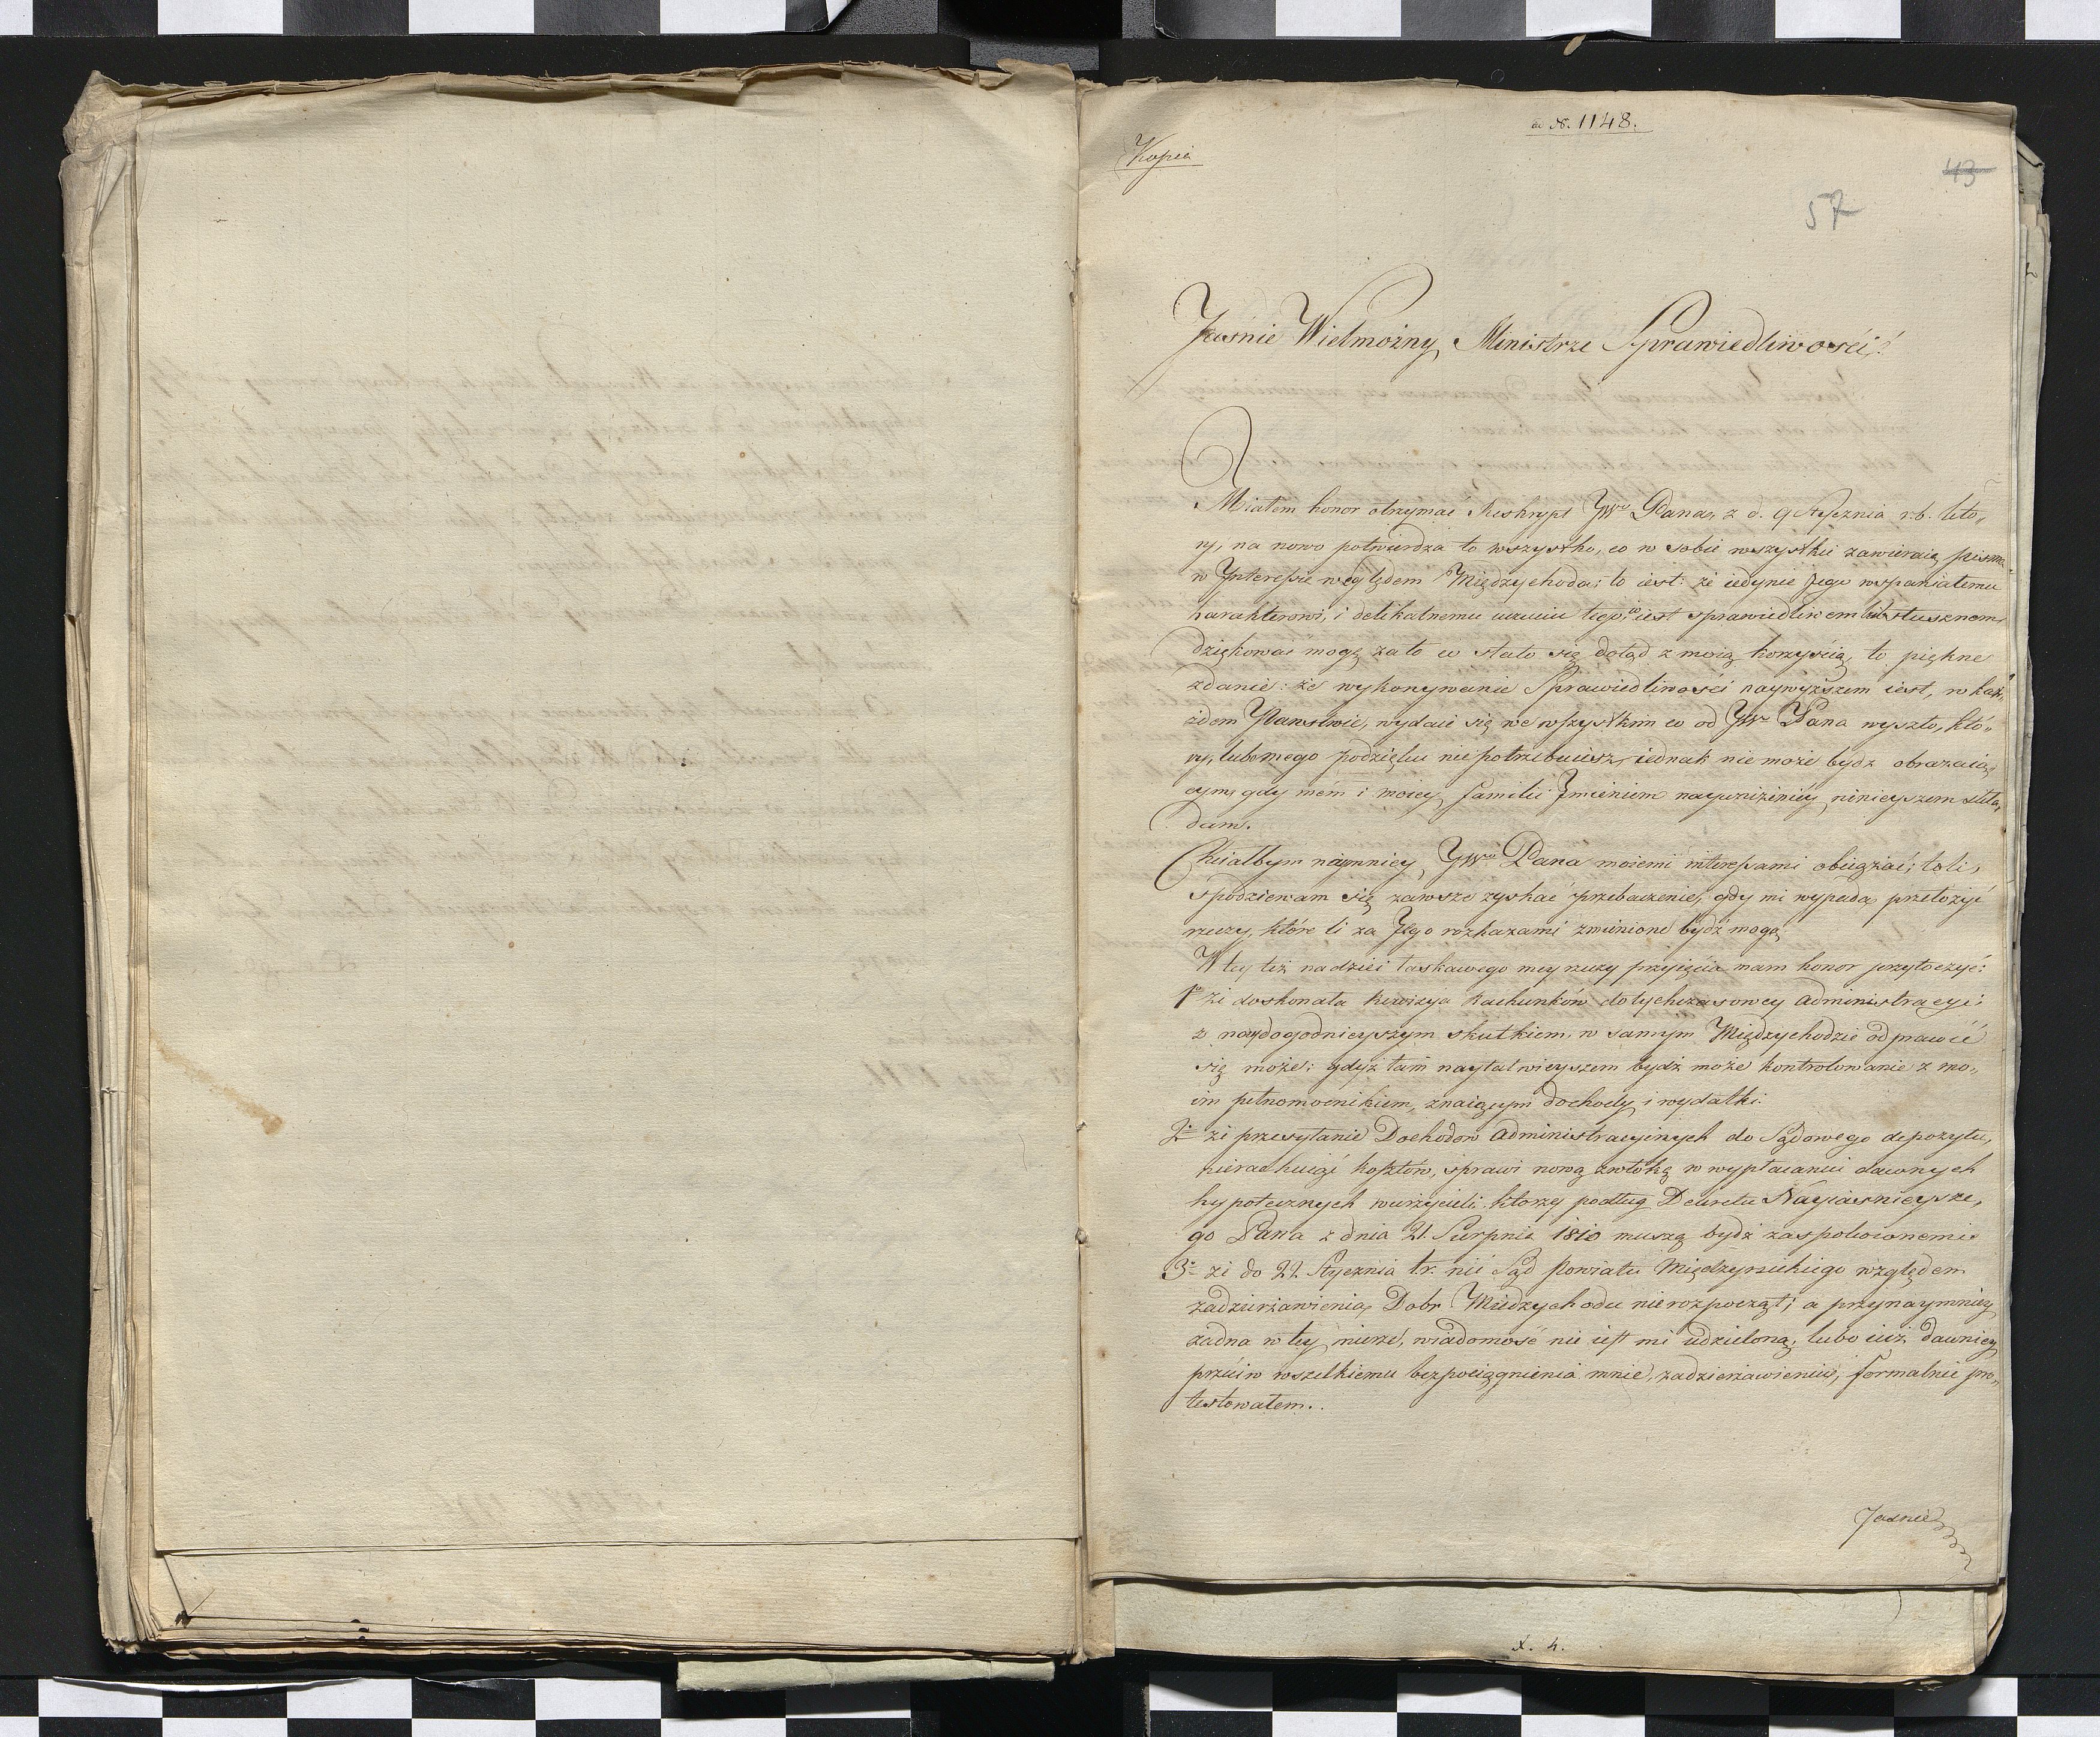 ad N. 1148.
Kopia
43
57
Jaśnie Wielmożny Ministrze Sprawiedliwości!
Miałem honor otrzymać Reskrypt JWo Pana, z d. 9 Stycznia r. b. któ„
ry, na nowo potwierdza to wszystko, co w sobie wszystkie zawieraią pisma
w Interessie względem Międzychoda; to iest: że iedynie Jego wspaniałemu
harakterowi, i delikatnemu uczuciu tego, co iest sprawiedliwem lub słusznem
dziękować mogę za to co stało się dotąd z moią korzyścią, to piękne
zdanie: że wykonywanie Sprawiedliwości naywyższem iest, w każ„
żdem Państwie, wydaie się we wszystkim co od JWo Pana wyszło, któ„
ry, lubo mego podzięku nie potrzebuiesz, iednak nie może bydz obrażaią„
cym, gdy mém i moiey familii Imieniem nayuniżeniéy, ninieyszem skła„
dam.
Chciałbym naymniey JWo Pana moiemi interessami obciążać; toli,
spodziewam się zawsze zyskać przebaczenie, gdy mi wypada, przełożyć
rzeczy, które li za Jego rozkazami zmienione bydź mogą
W tey też nadziei łaskawego mey rzeczy przyięcia mam honor przytoczyć:
1o że doskonała Rewizya Rachunków dotychczasowey Administracyi,
z naydogodnieyszym skutkiem, w samym Międzychodzie odprawić
się może; gdyż tam nayłatwieyszem bydż może kontrolowanie z mo„
im pełnomocnikiem, znaiącym dochody i wydatki.
2o że przesyłanie Dochodów Administracyinych do Sądowego depozytu,
nierachuiąc kosztów, sprawi nową zwłokę w wypłacaniu dawnych
hypotecznych wierzycieli, którzy podług Dekretu Nayiaśnieysze„
go Pana z dnia 21. Sierpnia 1810 muszą bydź zaspokoionemi
3o że do 22. Stycznia t. r. nic Sąd Powiatu Międzyrzeckiego względem
zadzierżawienia, Dobr Miedzychodu nierozpoczął; a przynaymniey
żadna w tey mierze, wiadomość nie iest mi udzieloną, lubo iuż dawniey
przeciw wszelkiemu bezpociągnienia mnie, zadzierżawieniu, formalnie pro„
testowałem.
Jaśnie